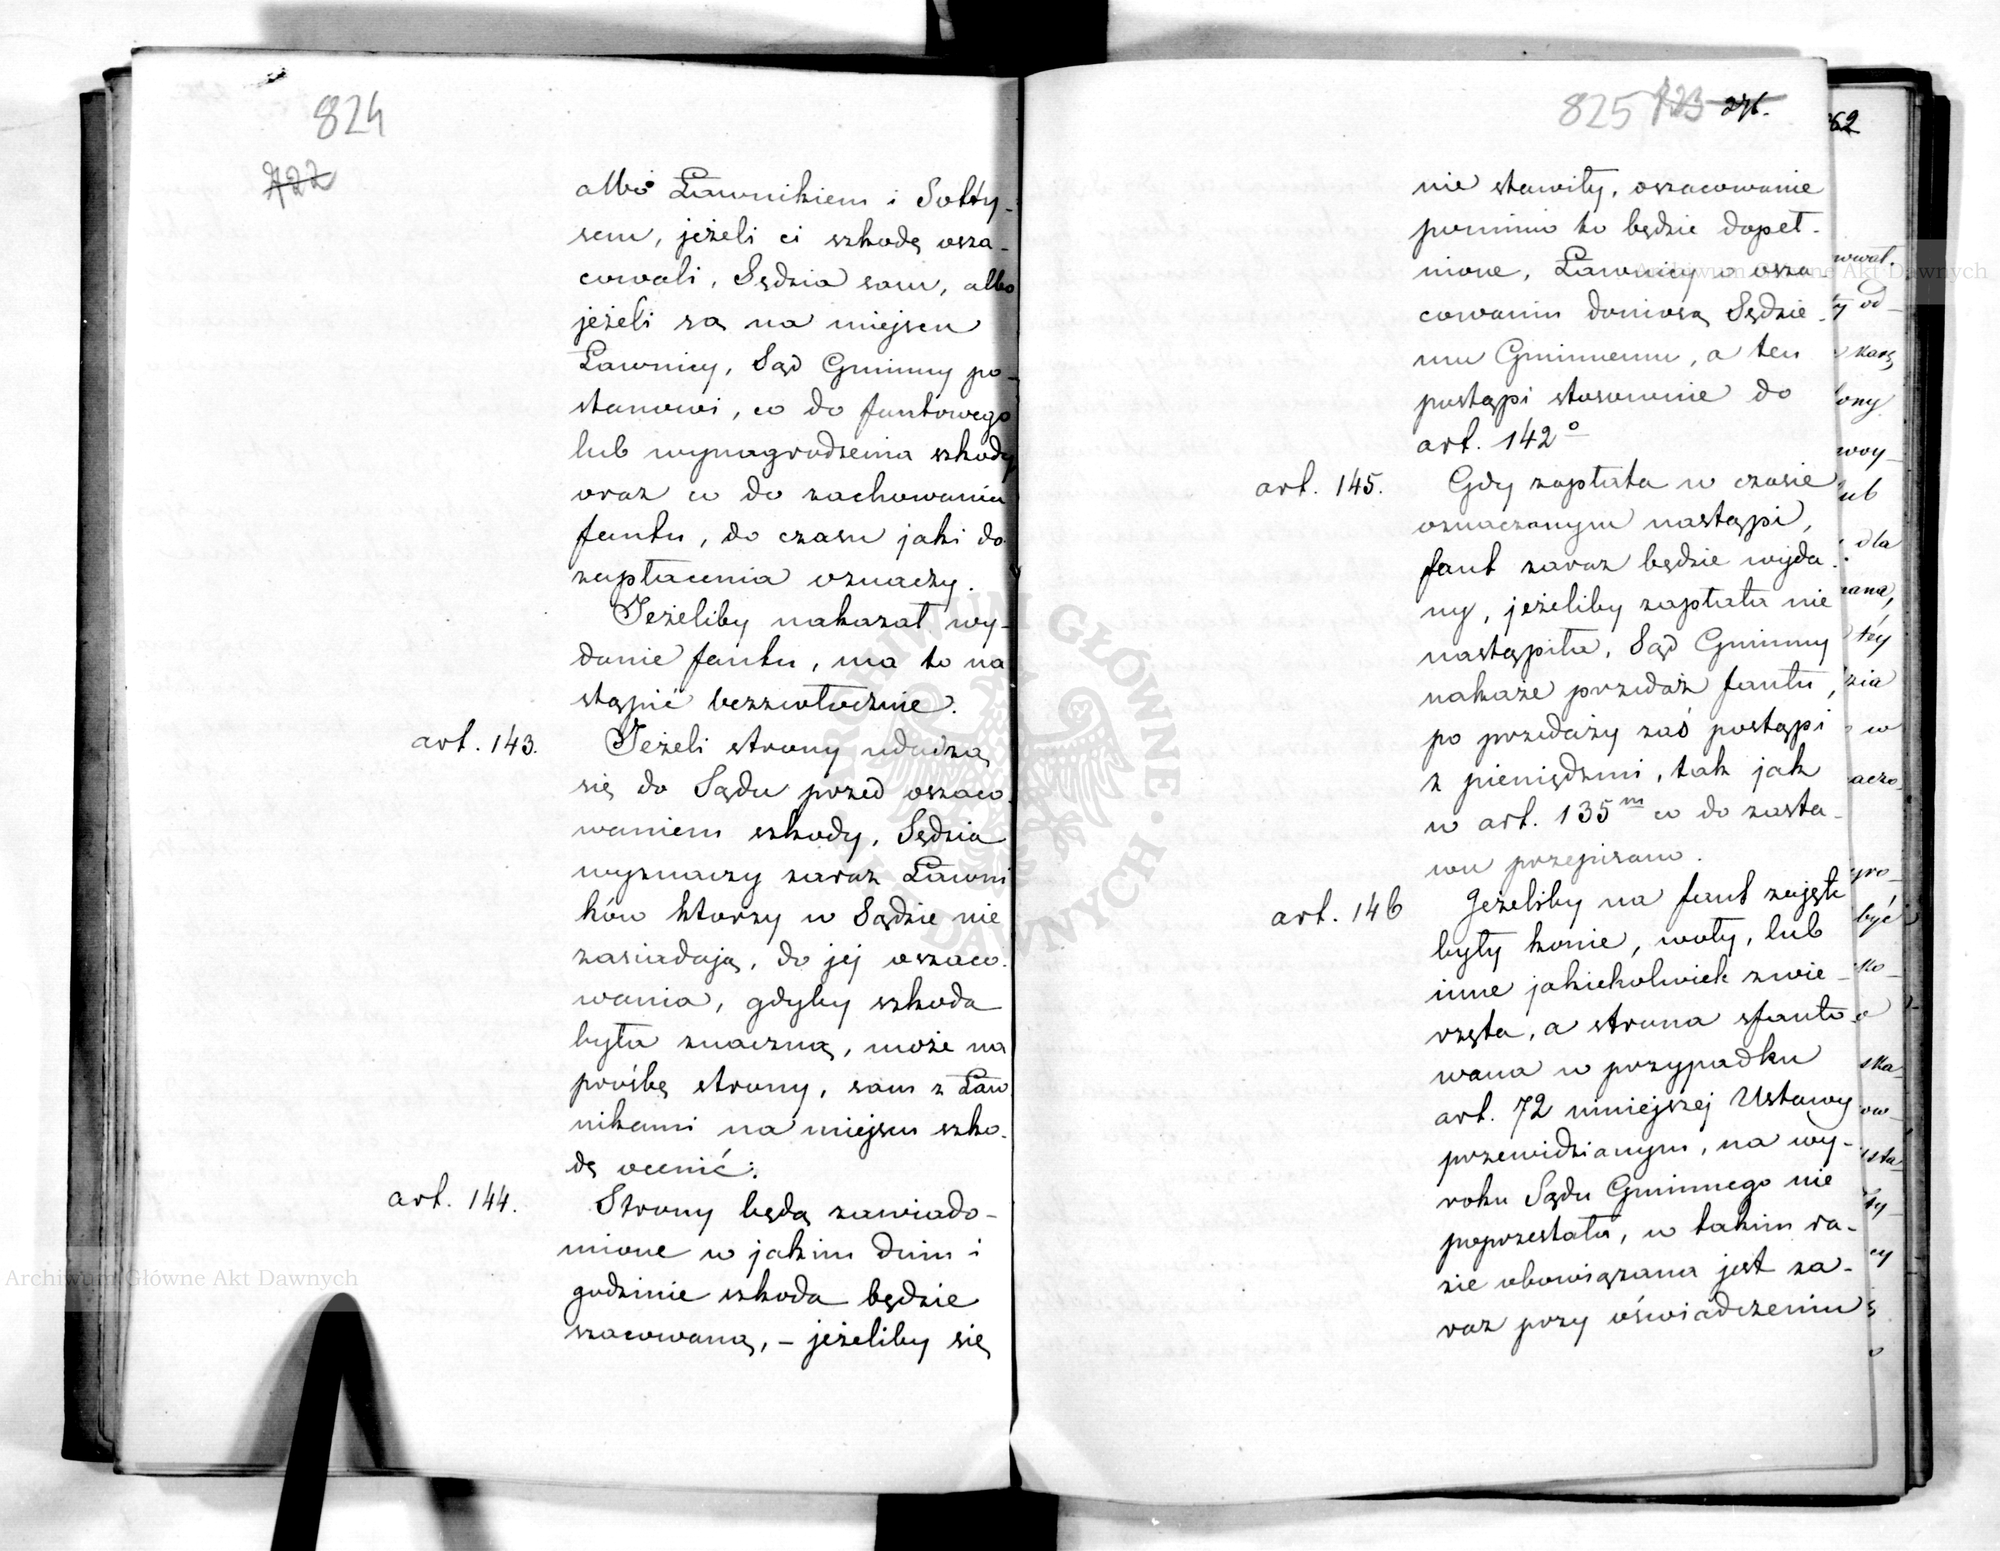 824
722
albo Ławnikiem i Sołty-
sem, jeżeli ci szkodę osza-
cowali, Sędzia sam, albo
jeżeli są na miejscu
Ławnicy, Sąd Gminny po-
stanowi, co do fantowego
lub wynagrodzenia szkody
oraz co do zachowania
fantu, do czasu jaki do
zapłacenia oznaczy.
Jeżeliby nakazał wy-
danie fantu, ma to na
stąpić bezzwłocznie.
art. 143. Jeżeli strony udadzą
się do Sądu przed oszaco-
waniem szkody, Sędzia
wyznaczy zaraz Ławni
ków którzy w Sądzie nie
zasiadają, do jej oszaco-
wania, gdyby szkoda
była znaczną, może na
prośbę strony, sam z Ław
nikami na miejscu szko-
dę ocenić.
art. 144. Strony będą zawiado-
mione w jakim dniu i
godzinie szkoda będzie
szacowaną, – jeżeliby się
825 723 276.
nie stawiły, oszacowanie
pomimo to będzie dopeł-
nione, Ławnicy o osza
cowaniu doniosą Sędzie-
mu Gminnemu, a ten
postąpi stosownie do
art. 142º
art. 145. Gdy zapłata w czasie
oznaczonym nastąpi,
fant zaraz będzie wyda-
ny, jeżeliby zapłata nie
nastąpiła, Sąd Gminny
nakaże przedaż fantu,
po przedaży zaś postąpi
z pieniędzmi, tak jak
w art. 135m co do zasta-
wu przepisano.
art. 146 Jeżeliby na fant zajęte
były konie, woły, lub
inne jakiekolwiek zwie-
rzęta, a strona sfanto-
wana w przypadku
art. 72 niniejszej Ustawy
przewidzianym, na wy-
roku Sądu Gminnego nie
poprzestała, w takim ra-
zie obowiązana jest za-
raz przy oświadczeniu
62
od-
karę
dla
tey
w
być
ska-
ARCHIWUM GŁÓWNE AKT DAWNYCH
Archiwum Główne Akt Dawnych
Archiwum Główne Akt Dawnych